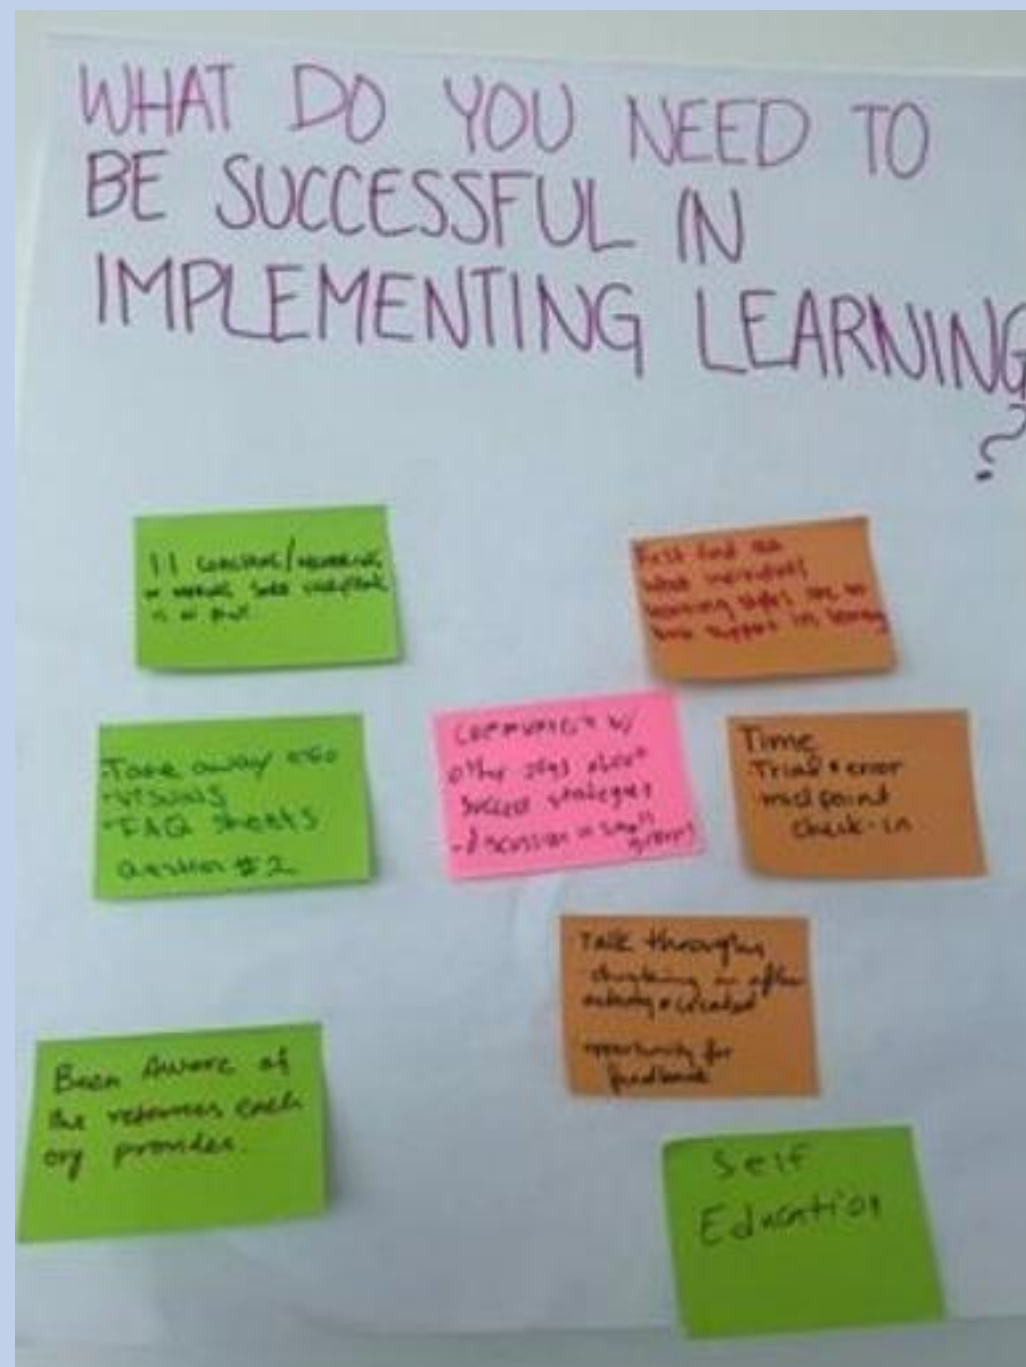 WHAT DO YOU NEED TO
BE SUCCESSFUL IN
IMPLEMENTING LEARNING
?
1:1 coaching/
is
First find out
what individual
learning styles are so
support in learning
Take away info
-visuals
-FAQ sheets
Question #2
Community w/
other orgs about
success strategies
-discussion in small groups
Time
Trial & error
midpoint
check-in
Talk through
activity
opportunity for
feedback
Been Aware of
the each
org provides.
Self
Education